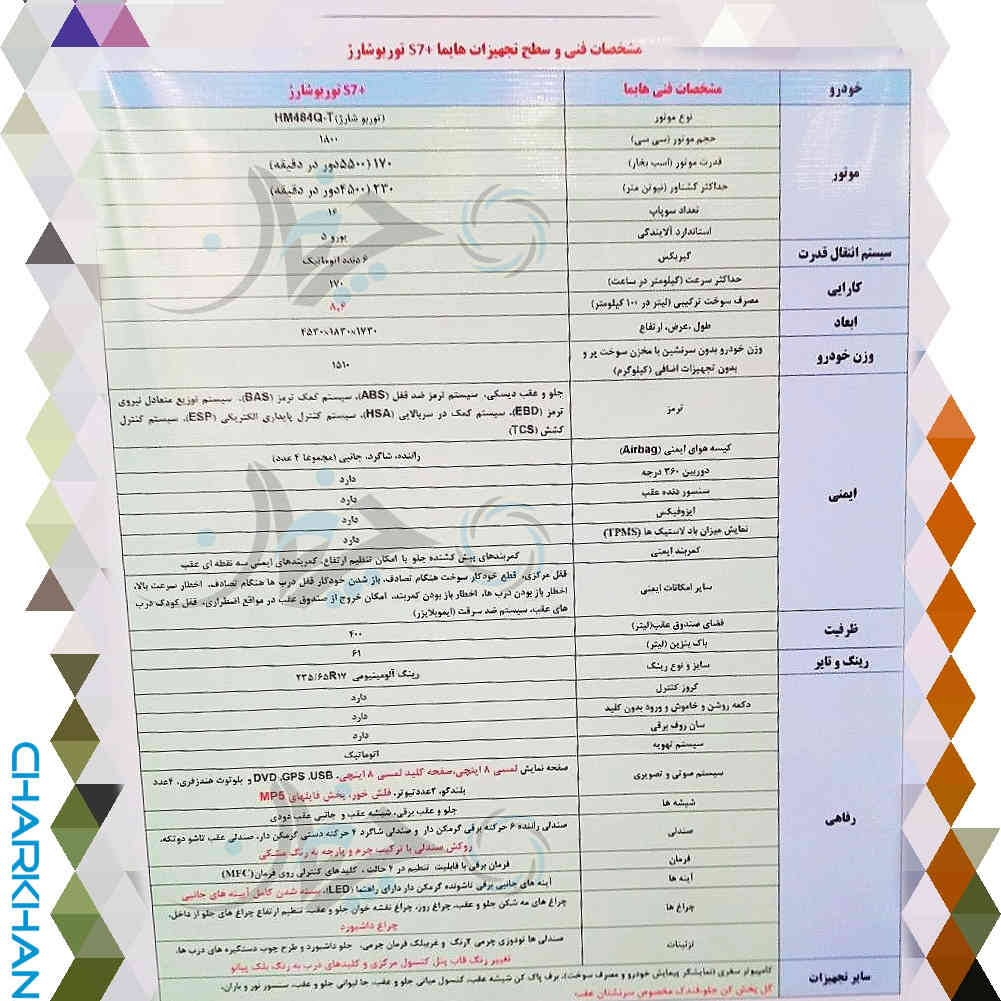 مشخصات فنی و سطح تجهیزات هایما +S7 توربوشارژ
خودرو مشخصات فنی هایما +S7 توربوشارژ
موتور
نوع موتور (توربو شارژ)HM484Q-T
حجم موتور (سی سی) ۱۸۰۰
قدرت موتور (اسب بخار) ۱۷۰ (۵۵۰۰دور در دقیقه)
حداکثر گشتاور (نیوتن متر) ۲۳۰ (۴۵۰۰دور در دقیقه)
تعداد سوپاپ ۱۶
استاندارد آلایندگی یورو ۵
سیستم انتقال قدرت گیربکس ۶ دنده اتوماتیک
کارایی
حداکثر سرعت (کیلومتر در ساعت) ۱۷۰
مصرف سوخت ترکیبی (لیتر در ۱۰۰ کیلومتر) ۸,۶
ابعاد طول ،عرض، ارتفاع ۴۵۳۰×۱۸۳۰×۱۷۳۰
وزن خودرو
وزن خودرو بدون سرنشین با مخزن سوخت پر و
بدون تجهیزات اضافی (کیلوگرم)
۱۵۱۰
ایمنی
ترمز
جلو و عقب دیسکی، سیستم ترمز ضد قفل (ABS)، سیستم کمک ترمز (BAS)، سیستم توزیع متعادل نیروی
ترمز (EBD)، سیستم کمک در سربالایی (HSA)، سیستم کنترل پایداری الکتریکی (ESP)، سیستم کنترل
کشش (TCS)
کیسه هوای ایمنی (Airbag) راننده، شاگرد، جانبی (مجموعا ۴ عدد)
دوربین ۳۶۰ درجه دارد
سنسور دنده عقب دارد
ایزوفیکس دارد
نمایش میزان باد لاستیک ها (TPMS) دارد
کمربند ایمنی کمربندهای پیش کشنده جلو با امکان تنظیم ارتفاع، کمربندهای ایمنی سه نقطه ای عقب
سایر امکانات ایمنی
قفل مرکزی، قطع خودکار سوخت هنگام تصادف، باز شدن خودکار قفل درب ها هنگام تصادف، اخطار سرعت بالا،
اخطار باز بودن درب ها، اخطار باز بودن کمربند، امکان خروج از صندوق عقب در مواقع اضطراری، قفل کودک درب
های عقب، سیستم ضد سرقت (ایموبلایزر)
ظرفیت
فضای صندوق عقب(لیتر) ۴۰۰
باک بنزین (لیتر) ۶۱
رینگ و تایر سایز و نوع رینگ رینگ آلومینیومی ۲۳۵/۶۵R۱۷
رفاهی
کروز کنترل دارد
دکمه روشن و خاموش و ورود بدون کلید دارد
سان روف برقی دارد
سیستم تهویه اتوماتیک
سیستم صوتی و تصویری
صفحه نمایش لمسی ۸ اینچی،صفحه کلید لمسی ۸ اینچی، DVD ،GPS ،USB و بلوتوث هندزفری، ۴عدد
بلندگو، ۲عددتیوتر، فلش خور، پخش فایلهای MP5
شیشه ها جلو و عقب برقی، شیشه عقب و جانبی عقب دودی
صندلی
صندلی راننده ۶ حرکته برقی گرمکن دار و صندلی شاگرد ۴ حرکته دستی گرمکن دار، صندلی عقب تاشو دوتکه،
روکش صندلی با ترکیب چرم و پارچه به رنگ مشکی
فرمان فرمان برقی با قابلیت تنظیم در ۲ حالت ، کلیدهای کنترلی روی فرمان(MFC)
آینه ها آینه های جانبی برقی تاشونده گرمکن دار دارای راهنما (LED)، بسته شدن کامل آیینه های جانبی
چراغ ها
چراغ های مه شکن جلو و عقب، چراغ روز، چراغ نقشه خوان جلو و عقب، تنظیم ارتفاع چراغ های جلو از داخل،
چراغ داشبورد
تزئینات
صندلی ها تودوزی چرمی ۲رنگ و غربیلک فرمان چرمی، جلو داشبورد و طرح چوب دستگیره های درب ها،
تغییر رنگ قاب پنل کنسول مرکزی و کلیدهای درب به رنگ بلک پیانو
سایر تجهیزات
کامپیوتر سفری (نمایشگر پیمایش خودرو و مصرف سوخت)، برف پاک کن شیشه عقب، کنسول میانی جلو و عقب، جا لیوانی جلو و عقب، سنسور نور و باران،
گل پخش کن جلو،فندک مخصوص سرنشینان عقب
چرخان
چرخان
CHARKHAN